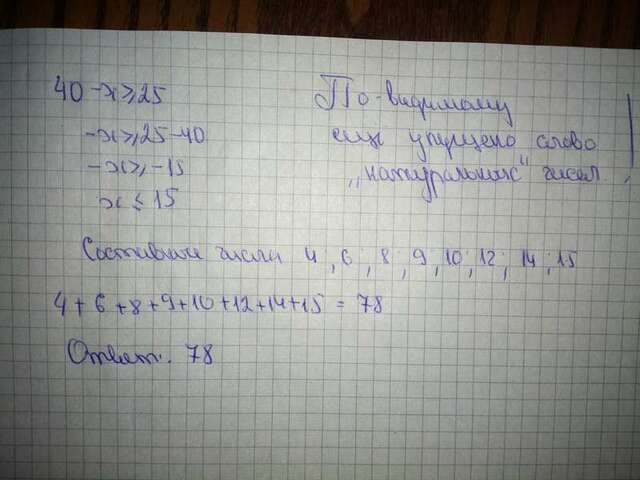 40 -x ≥ 25
-x ≥ 25 -40
-x ≥ -15
x ≤ 15
По-видимому
ещё упущено слово
„натуральных" чисел
Составные числа 4 ; 6 ; 8 ; 9 ; 10 ; 12 ; 14 ; 15
4 + 6 + 8 + 9 + 10 + 12 + 14 + 15 = 78
Ответ. 78